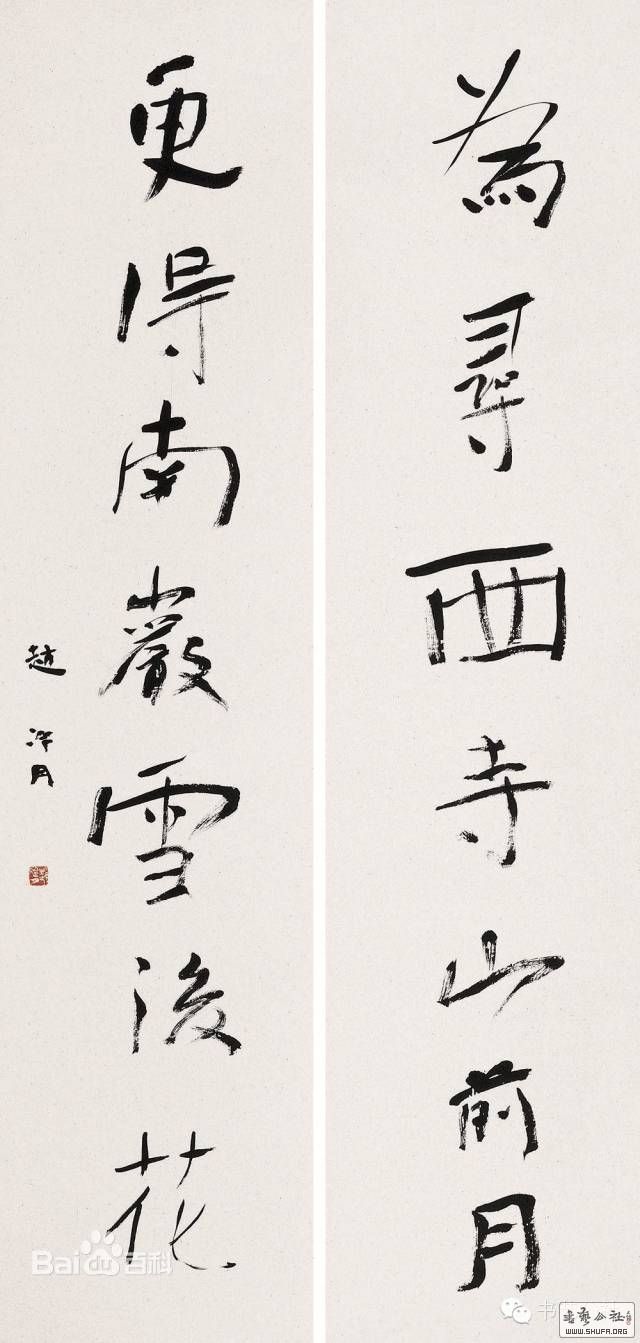 為尋西寺山前月
更得南巖雪後花
趙冷月
Bai百科
书艺公社
WWW.SHUFA.ORG